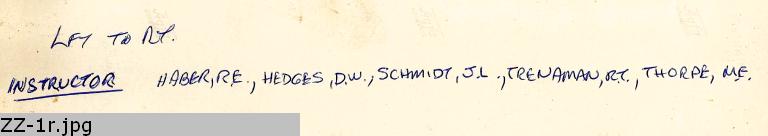 LFT TO RT.
INSTRUCTOR HABER, R.E., HEDGES, D.W., SCHMIDT, J.L., TRENAMAN, R.T., THORPE, M.E.
ZZ-1r.jpg